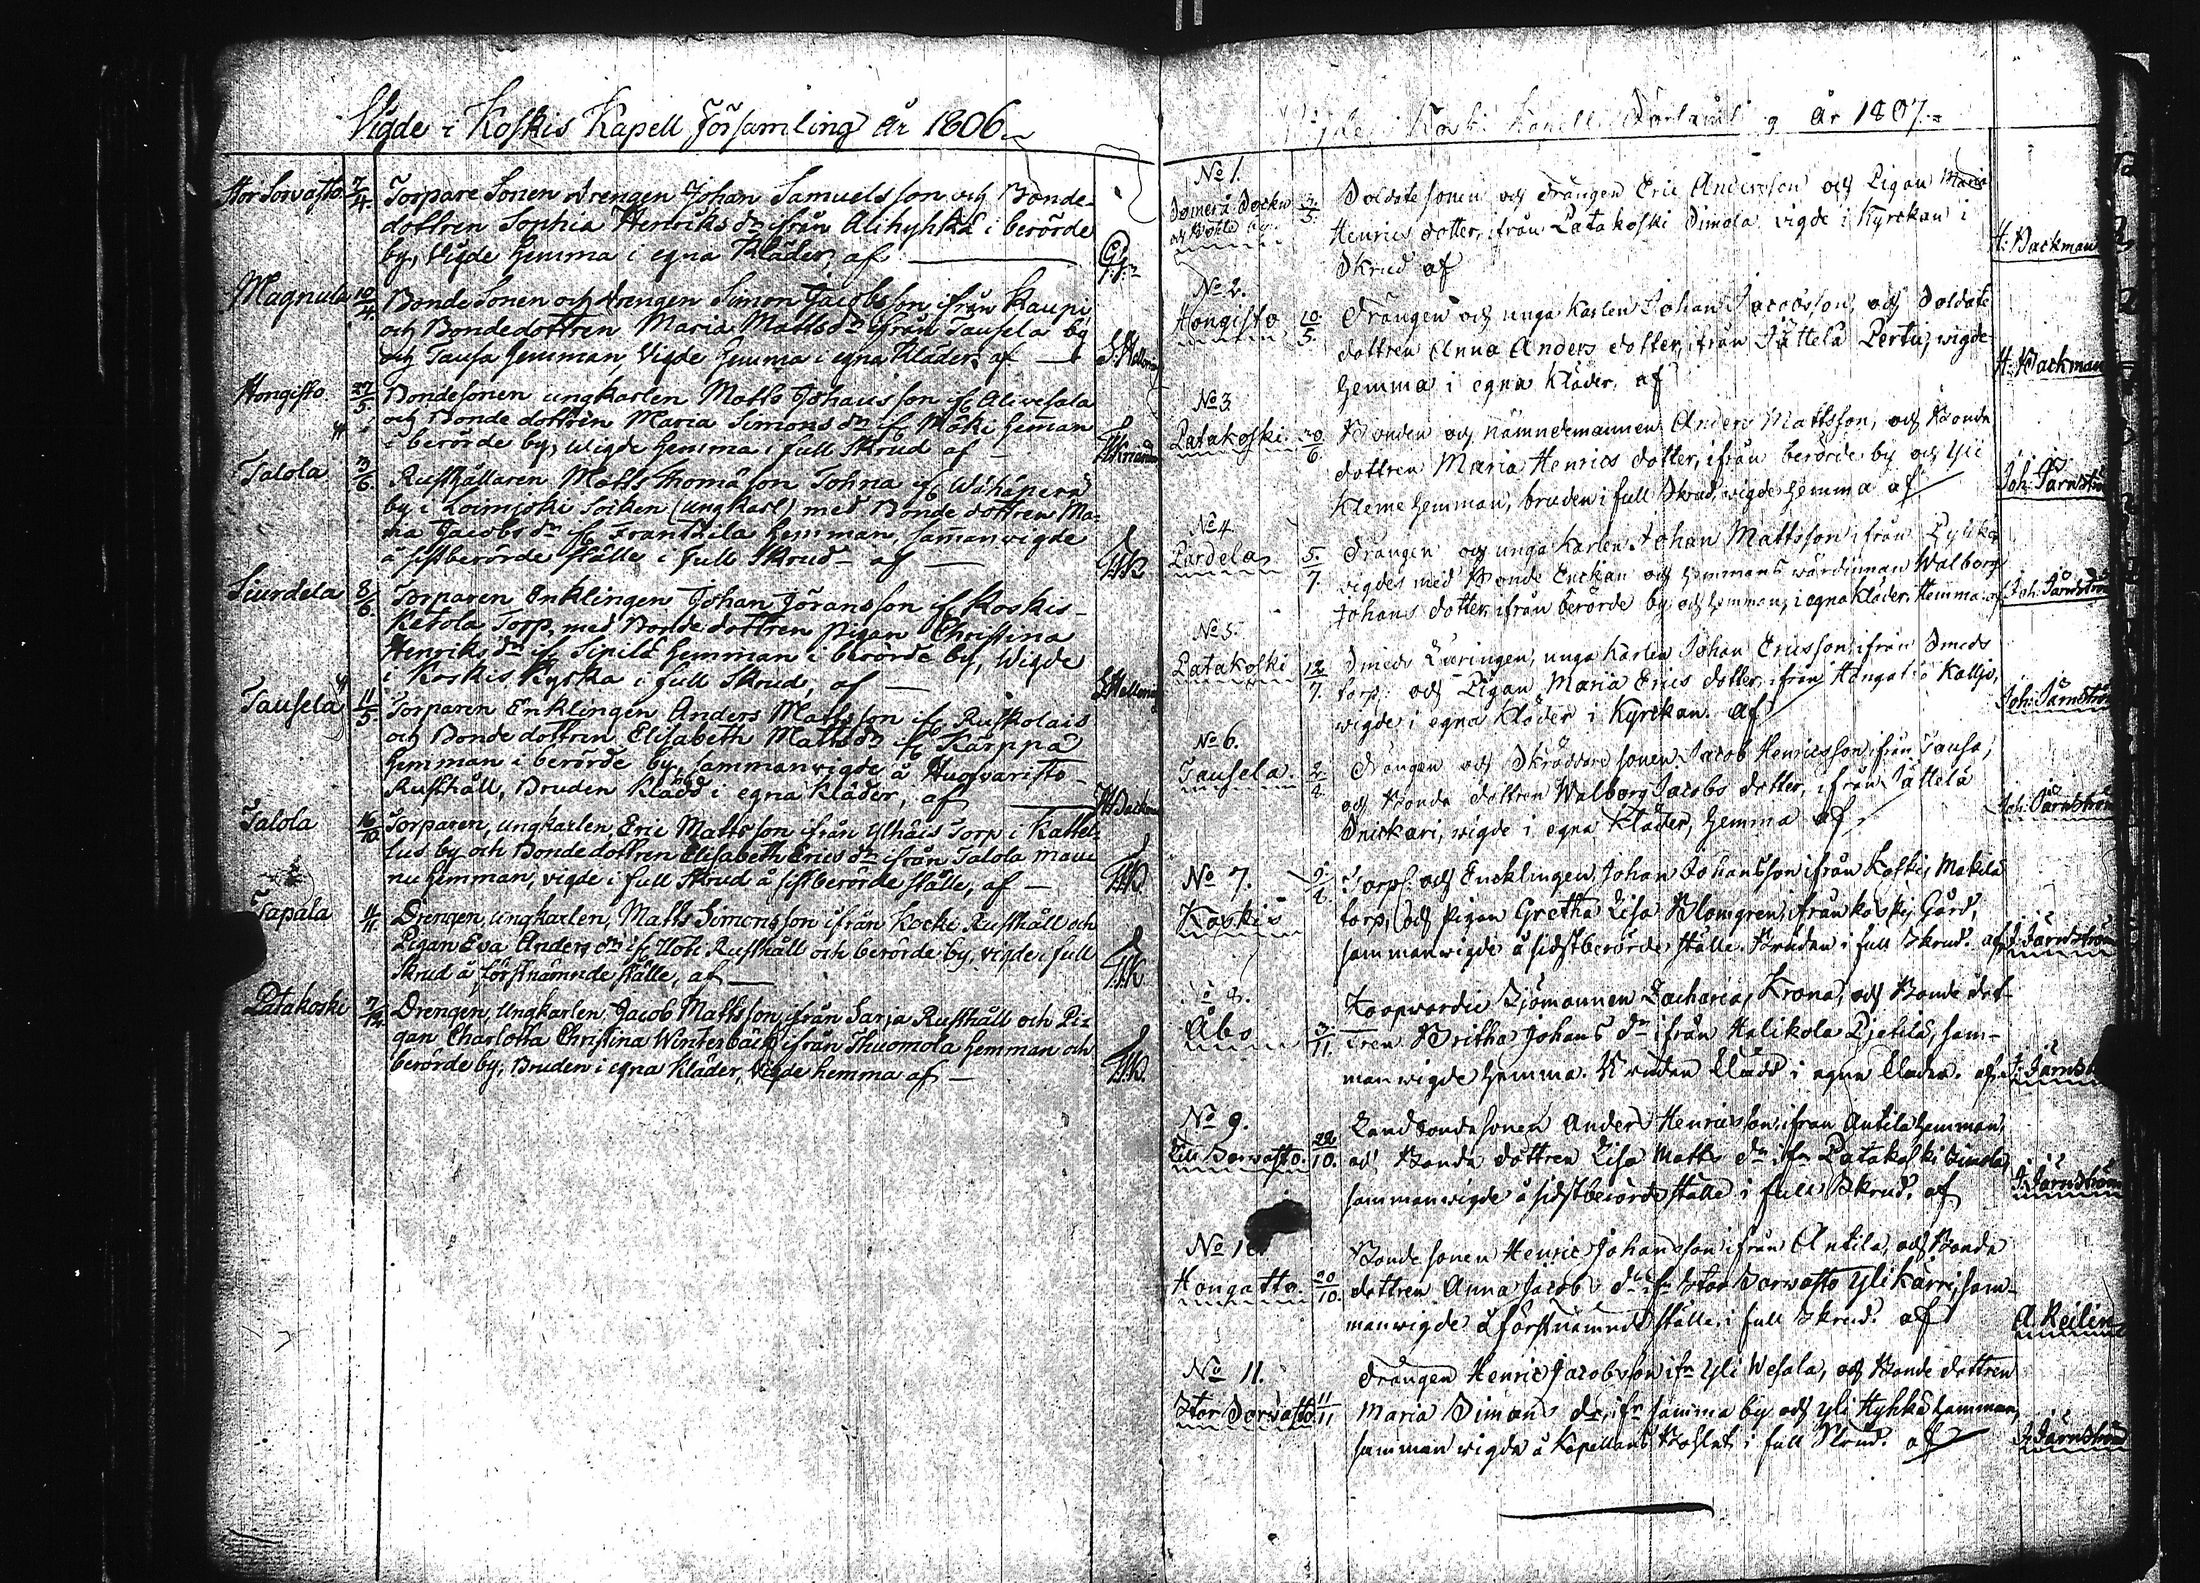 Vigde i Koskis Kapell Församling år 1806
Stor Sorvasto 7/4. Torpare Sonen drengen Johan Samuelsson och Bonde
dottren Sophia Henriks dr ifrån Alihyhkä i berörde
by, Vigde hemma i egna Kläder, af
Magnula 10/4. Bonde Sonen och drengen Simon Jacobsson ifrån Kaupi
och Bondedottren Maria Matts dr ifrån Tausela by
och Tausa hemman, Vigde hemma i egna Kläder, af
Hongisto 27/5. Bondesonen ungkarlen Matts Johansson if Alivesala
och Bonde dottren Maria Simons dr if Mäki heman
i berörde by, Wigde hemma i full Skrud af
Talola 3/6. Rusthållaren Matts Thomasson Tohna if Wähäperä
by i Loimjoki Socken (ungkarl) med Bonde dottren Ma-
ria Jacobs dr if Franthila hemman, samanwigde
å sistberörde ställe i full Skrud af T.K.
Siurdela 8/6. Torparen Enklingen Johan Jöransson if Koskis
Ketola Torp, med Bonde dottren pigan Christina
Henriks dr if Sipilä hemman i berörde by, Wigde
i Koskis Kyrka i full Skrud, af
Tausela 11/5. Torparen Enklingen Anders Mattsson if Ruskolais
och Bonde dottren Elisabeth Matts dr if Karppa
hemman i berörde by, sammanwigde å Huovaristo
Rusthåll, Bruden klädd i egna kläder, af H. Backman
Talola 16/10. Torparen, ungkarlen, Eric Mattsson ifrån Ylhäis Torp i Kattel-
lus by och Bondedottren Elisabeth Erics dr ifrån Talola
hemman, vigde i full Skrud å sistberörde ställe, af T.K.
Tapala 4/11. Drengen, ungkarlen, Matts Simonsson ifrån Kocki Rusthåll och
Pigan Eva Anders dr if Uoti Rusthåll och berörde by, vigde i full
Skrud å förstnämnde ställe, af T.K.
Patakoski 7/12. Drengen, ungkarlen, Jacob Mattsson, ifrån Sarja Rusthåll och Pi-
gan Charlotta Christina Winterbäck ifrån Thuomola hemman och
berörde by, Bruden i egna kläder, vigde hemma af T.K.
år 1807.
No 1. Soldate sonen och drängen Eric Andersson och Pigan Maria
3/5. Henrics dotter, ifrån Patakoski Simola vigde i Kyrckan i
Skrud af H. Backman
No 2.
Hongisto 10/5. Drängen och unga Karlen Johan Jacobsson, och Soldate
dottren Anna Anders dotter, ifrån Jättelä Perttu, wigde
hemma i egna Kläder, af H. Backman
No 3.
Patakoski 30/6 Bonden och nämndemannen Anders Mattsson, och Bonde
dottren Maria Henrics dotter, ifrån berörde by och
hemman, bruden i full Skrud, wigde hemma af Joh: Järnström
No 4
Pardela 5/7. Drängen och unga Karlen Johan Mattsson ifrån
wigdes med Bonde Enckan och hemmans wärdinnan Walborg
Johans dotter, ifrån berörde by och hemman, i egna Kläder, Hemma af Joh: Järnström
No 5.
Patakoski 12/7. Smeds Läringen, unga Karlen Johan Ericsson, ifrån Smeds
torp: och Pigan Maria Erics dotter, ifrån Hongatto
wigde i egna Kläder i Kyrckan. af Joh: Järnström
No 6.
Tausela. Drängen och Skräddare sonen Jacob Henricsson ifrån Tausa,
och Bonde dottren Walborg Jacobs dotter, ifrån Jättelä
wigde i egna kläder, hemma af Joh: Järnström
No 7. Torp: och Encklingen, Johan Johansson ifrån Koski, Makilä
Koskis torp, och Pigan Gretha Lisa Blomgren, ifrån koski Gård,
sammanwigde å sidstberörde ställe. Bruden i full Skrud. af J: Järnström
8. Koopvardie Sjömannen Zacharias Krona, och Bonde dot-
Åbo 3/11. tren Britha Johans dr ifrån Halikola Pietilä, sam-
manwigde hemma. Bruden klädd i egna kläder. af J: Järnst
No 9. Landbondesonen Anders Henricsson ifrån Antila hemman,
Lill Sorvasto. 22/10. och Bonde dottren Lisa Matts dr ifr Patakoski Simola,
sammanwigde å sidstberörde ställe i full Skrud. af J: Järnström
No 10. Bonde sonen Henric Johansson ifrån Antila, och Bonde
Hongatto. 20/10. dottren Anna Jacobs dr ifr Stor Sorvasto Yli Kärri, sam-
manwigde å förstnämnde ställe, i full Skrud. af A. Reilin
No 11. Drängen Henric Jacobsson ifr Yli Wesala, och Bonde dottren
Stor Sorvasto 11/11 Maria Simons dr, ifr samma by och yli Hyhkä hemman,
sammanwigde å Kapellans Bohlet i full Skrud. af J: Järnström